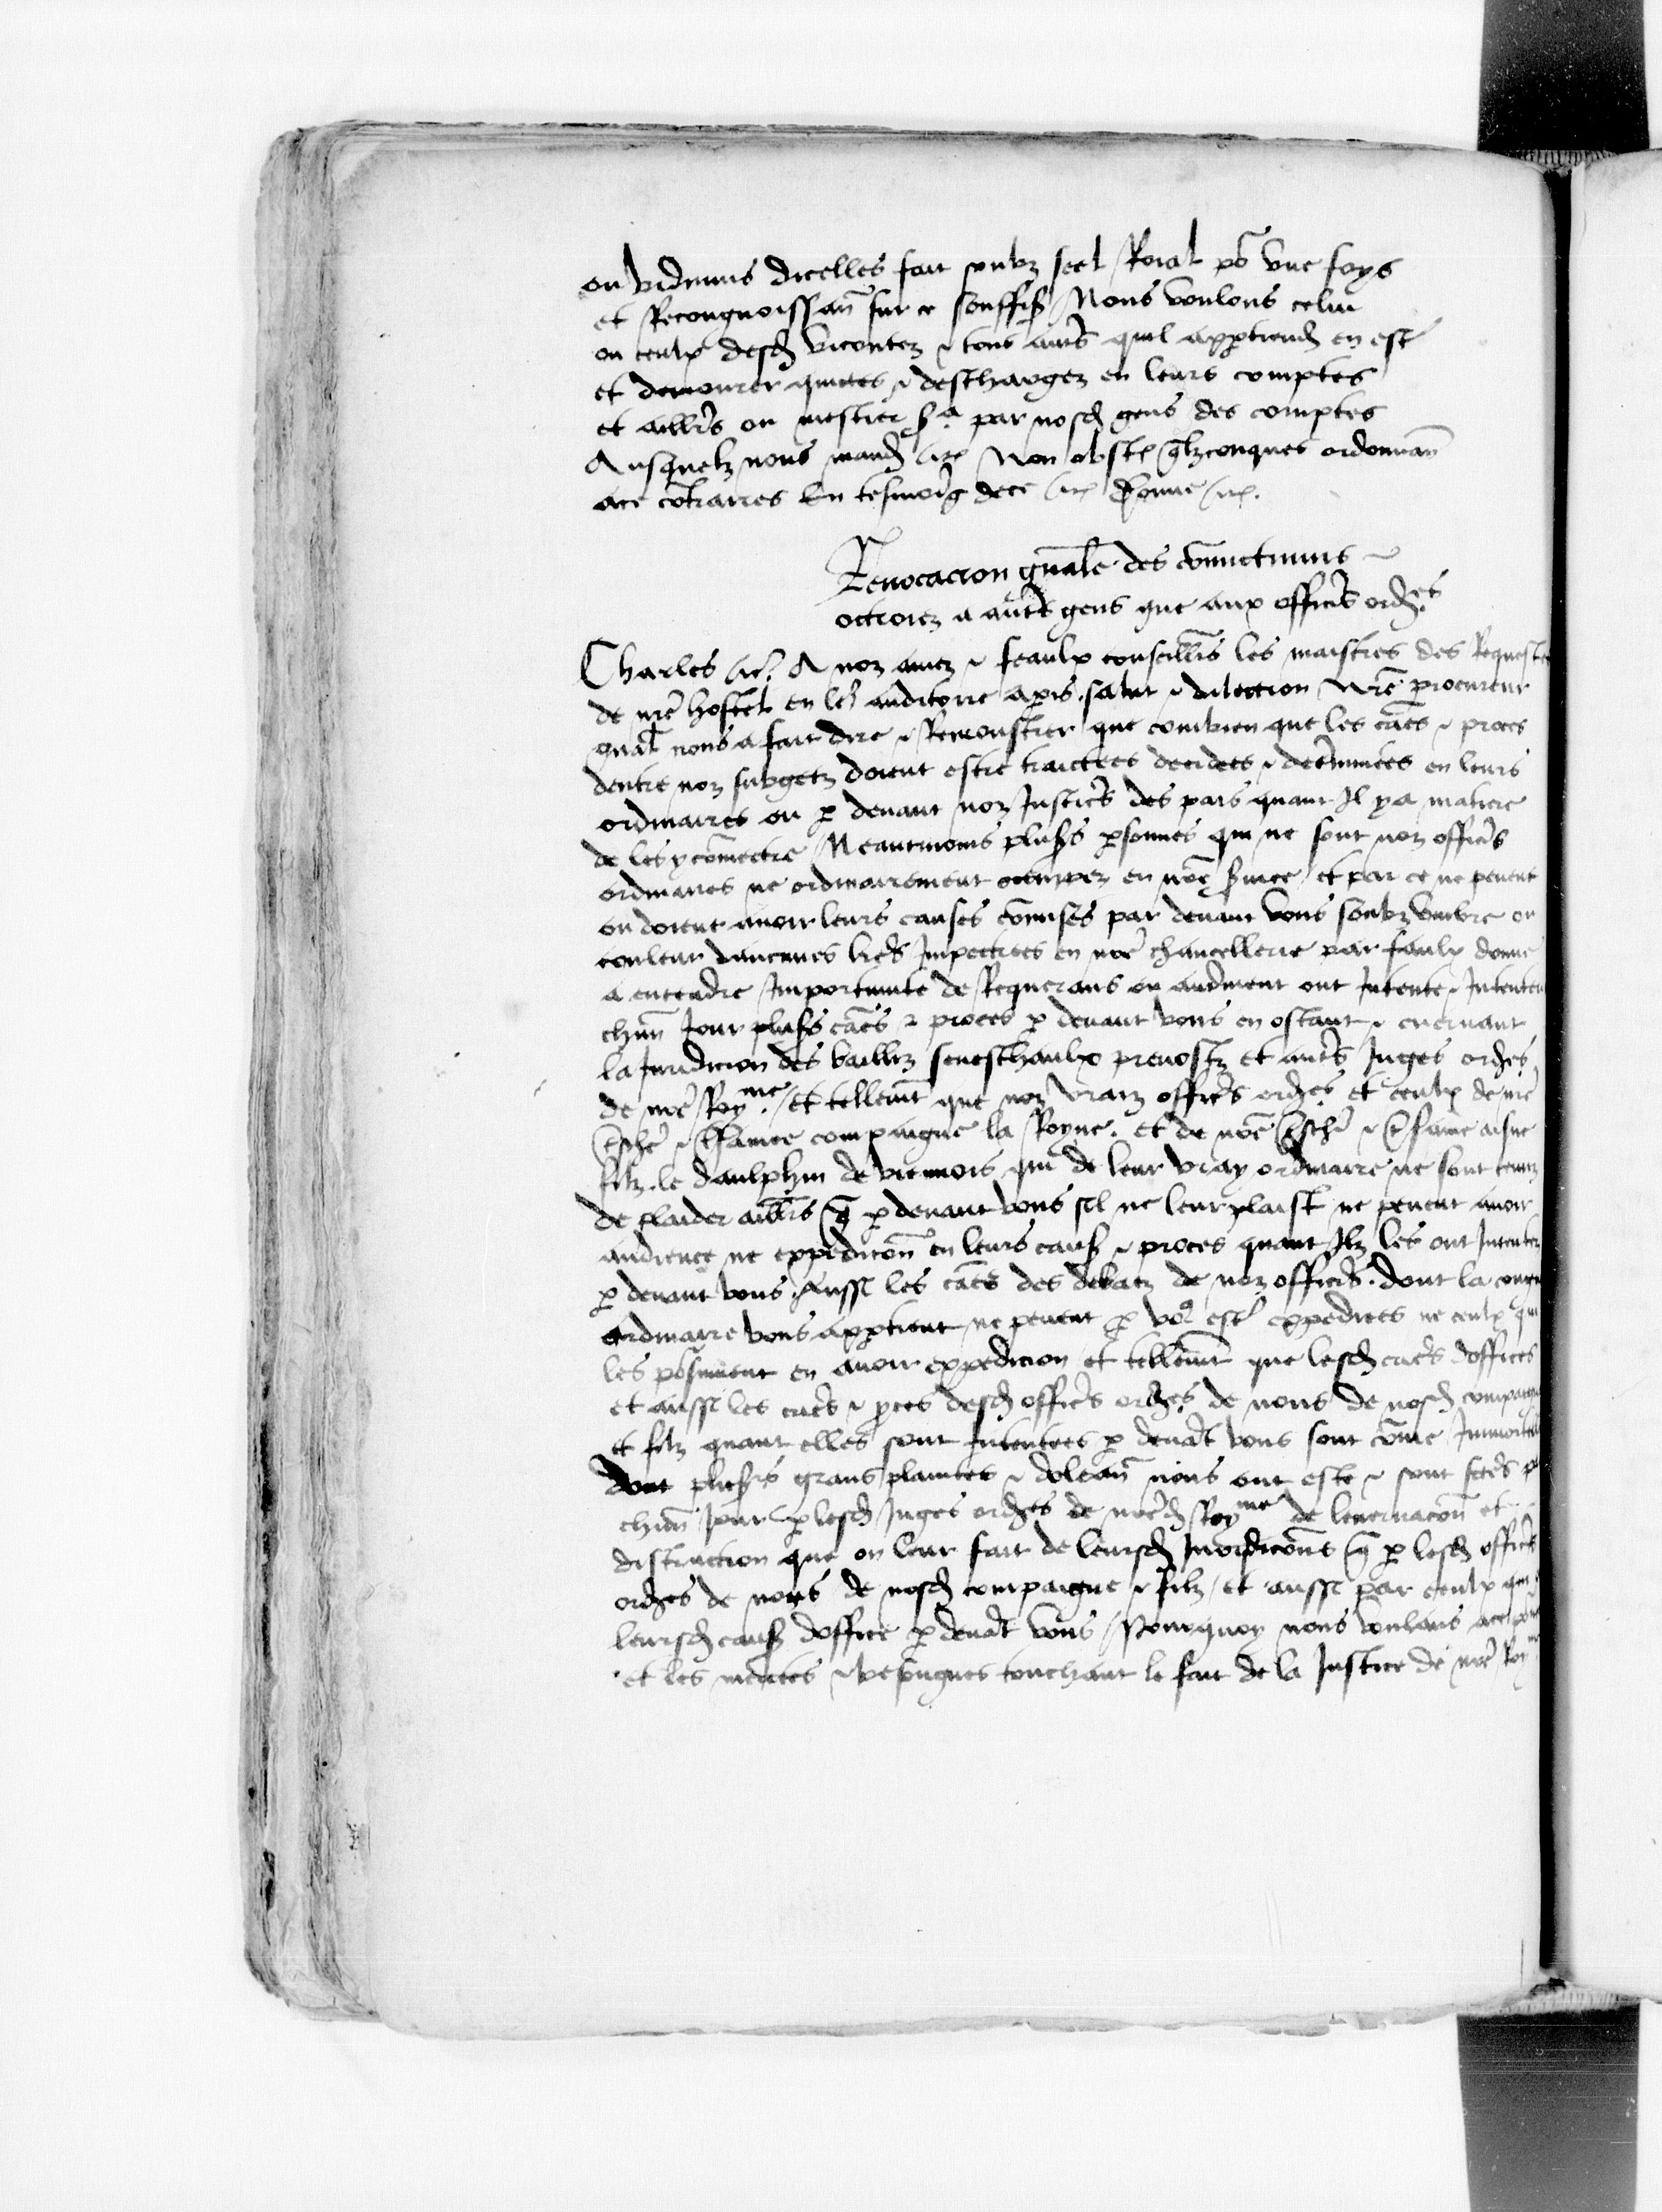 ou vidimus dicelles fait soubz seel Roial po᷑ une foys
et Recongnoissan̄ sur ce souffis̄ Nous voulons celui
ou ceulx desd̄ vicontez ⁊ tous aut̄s quil app̱tiend̄ en est᷑
et demourer quittes ⁊ deschargez en leurs comptes
et aill̄rs ou mestier s̄a par nosd̄ gens des comptes
Ausquelz nous mand̄ etc̄ Non obst̄ q̄lzconques ordonnan̄
ace cōtraires En tesmoīg dece etc̄ Donne etc̄.
Revocacion gn̄ale des com̄ictimus
octroiez a aut̄s gens que aux offic̄s ord̄es
Charles etc̄. A noz amez ⁊ feaulx conseill̄rs les maistres des Requestes
de nr̄e hostel en le᷑ auditoire a p̱is salut ⁊ dilection Nr̄e procureur
gn̄al nous a fait dire ⁊ Remonstrer que combien que les cāes ⁊ proces
dentre noz subgetz doient estre traictees decidees ⁊ det̄minees en leurs
ordinaires ou p̱ devant noz Justic̄s des pais quant Il y a matiere
de les y com̄ectre Neantmoins plus̄s p̱sonnes qui ne sont noz offic̄s
ordinaires ne ordinairement occuppez en nr̄e s̄vice et par ce ne pevent
ou doient avoir leurs causes com̄ises par devant vous soubz umbre ou
couleur daucunes lr̄es Impetrees en nr̄e chancellerie par faulx donne
a entendre Importunite de Requerans ou audment ont Intente ⁊ Intentent
chūn Jour plus̄s cāes ⁊ proces p̱ devant vous en ostant ⁊ enervant
la Juridicion des bailliz seneschaulx prevostz et aut̄s Juges ord̄es
de nr̄e Royme et tellem̄t que noz vraiz offic̄s ord̄es et ceulx de nr̄e
t̄sch̄e ⁊ t̄samee compaigne la Royne. et de nr̄e t̄sch̄e ⁊ t̄same aisne
filz le daulphin de viennois qui de leur vray ordinaire ne sont tenuz
de plaider aill̄rs q̄ p̱ devant vous sil ne leur plaist ne pevent avoir
audience ne expedicōn en leurs caus̄ ⁊ proces quant Ilz les ont Intentez
p̱ devant vous. Aussi les cāes des debatz de noz offic̄s. dont la congn
ordinaire vous app̱tient ne pevent p̱ vo᷑ est᷑ expediees ne ceulx qui
les poursuivent en avoir expedicion et tellem̄t que lesd̄ cāes doffices
et aussi les cāes ⁊ p̱ces desd̄ offic̄s ord̄es de nous de nosd̄ compaigne
et filz quant elles sont Intentees p̱ devāt vous sont com̄e Immortel
dont plus̄rs grans plaintes ⁊ dolean̄ nous ont este ⁊ sont fc̄es
chūn Jour p̱ lesd̄ Juges ord̄es de nr̄ed̄ Royme de lenervacōn et
distraction que on leur fait de leursd̄ Juridicōns q̄ p̱ lesd̄ offic̄s
ord̄es de nous de nosd̄ compaigne ⁊ filz et aussi par ceulx qui
leursd̄ caus̄ doffice p̱ devāt vous Pourquoy nous voulans ace
et les besongnes touchant le fait de la Justice de nr̄e Roy